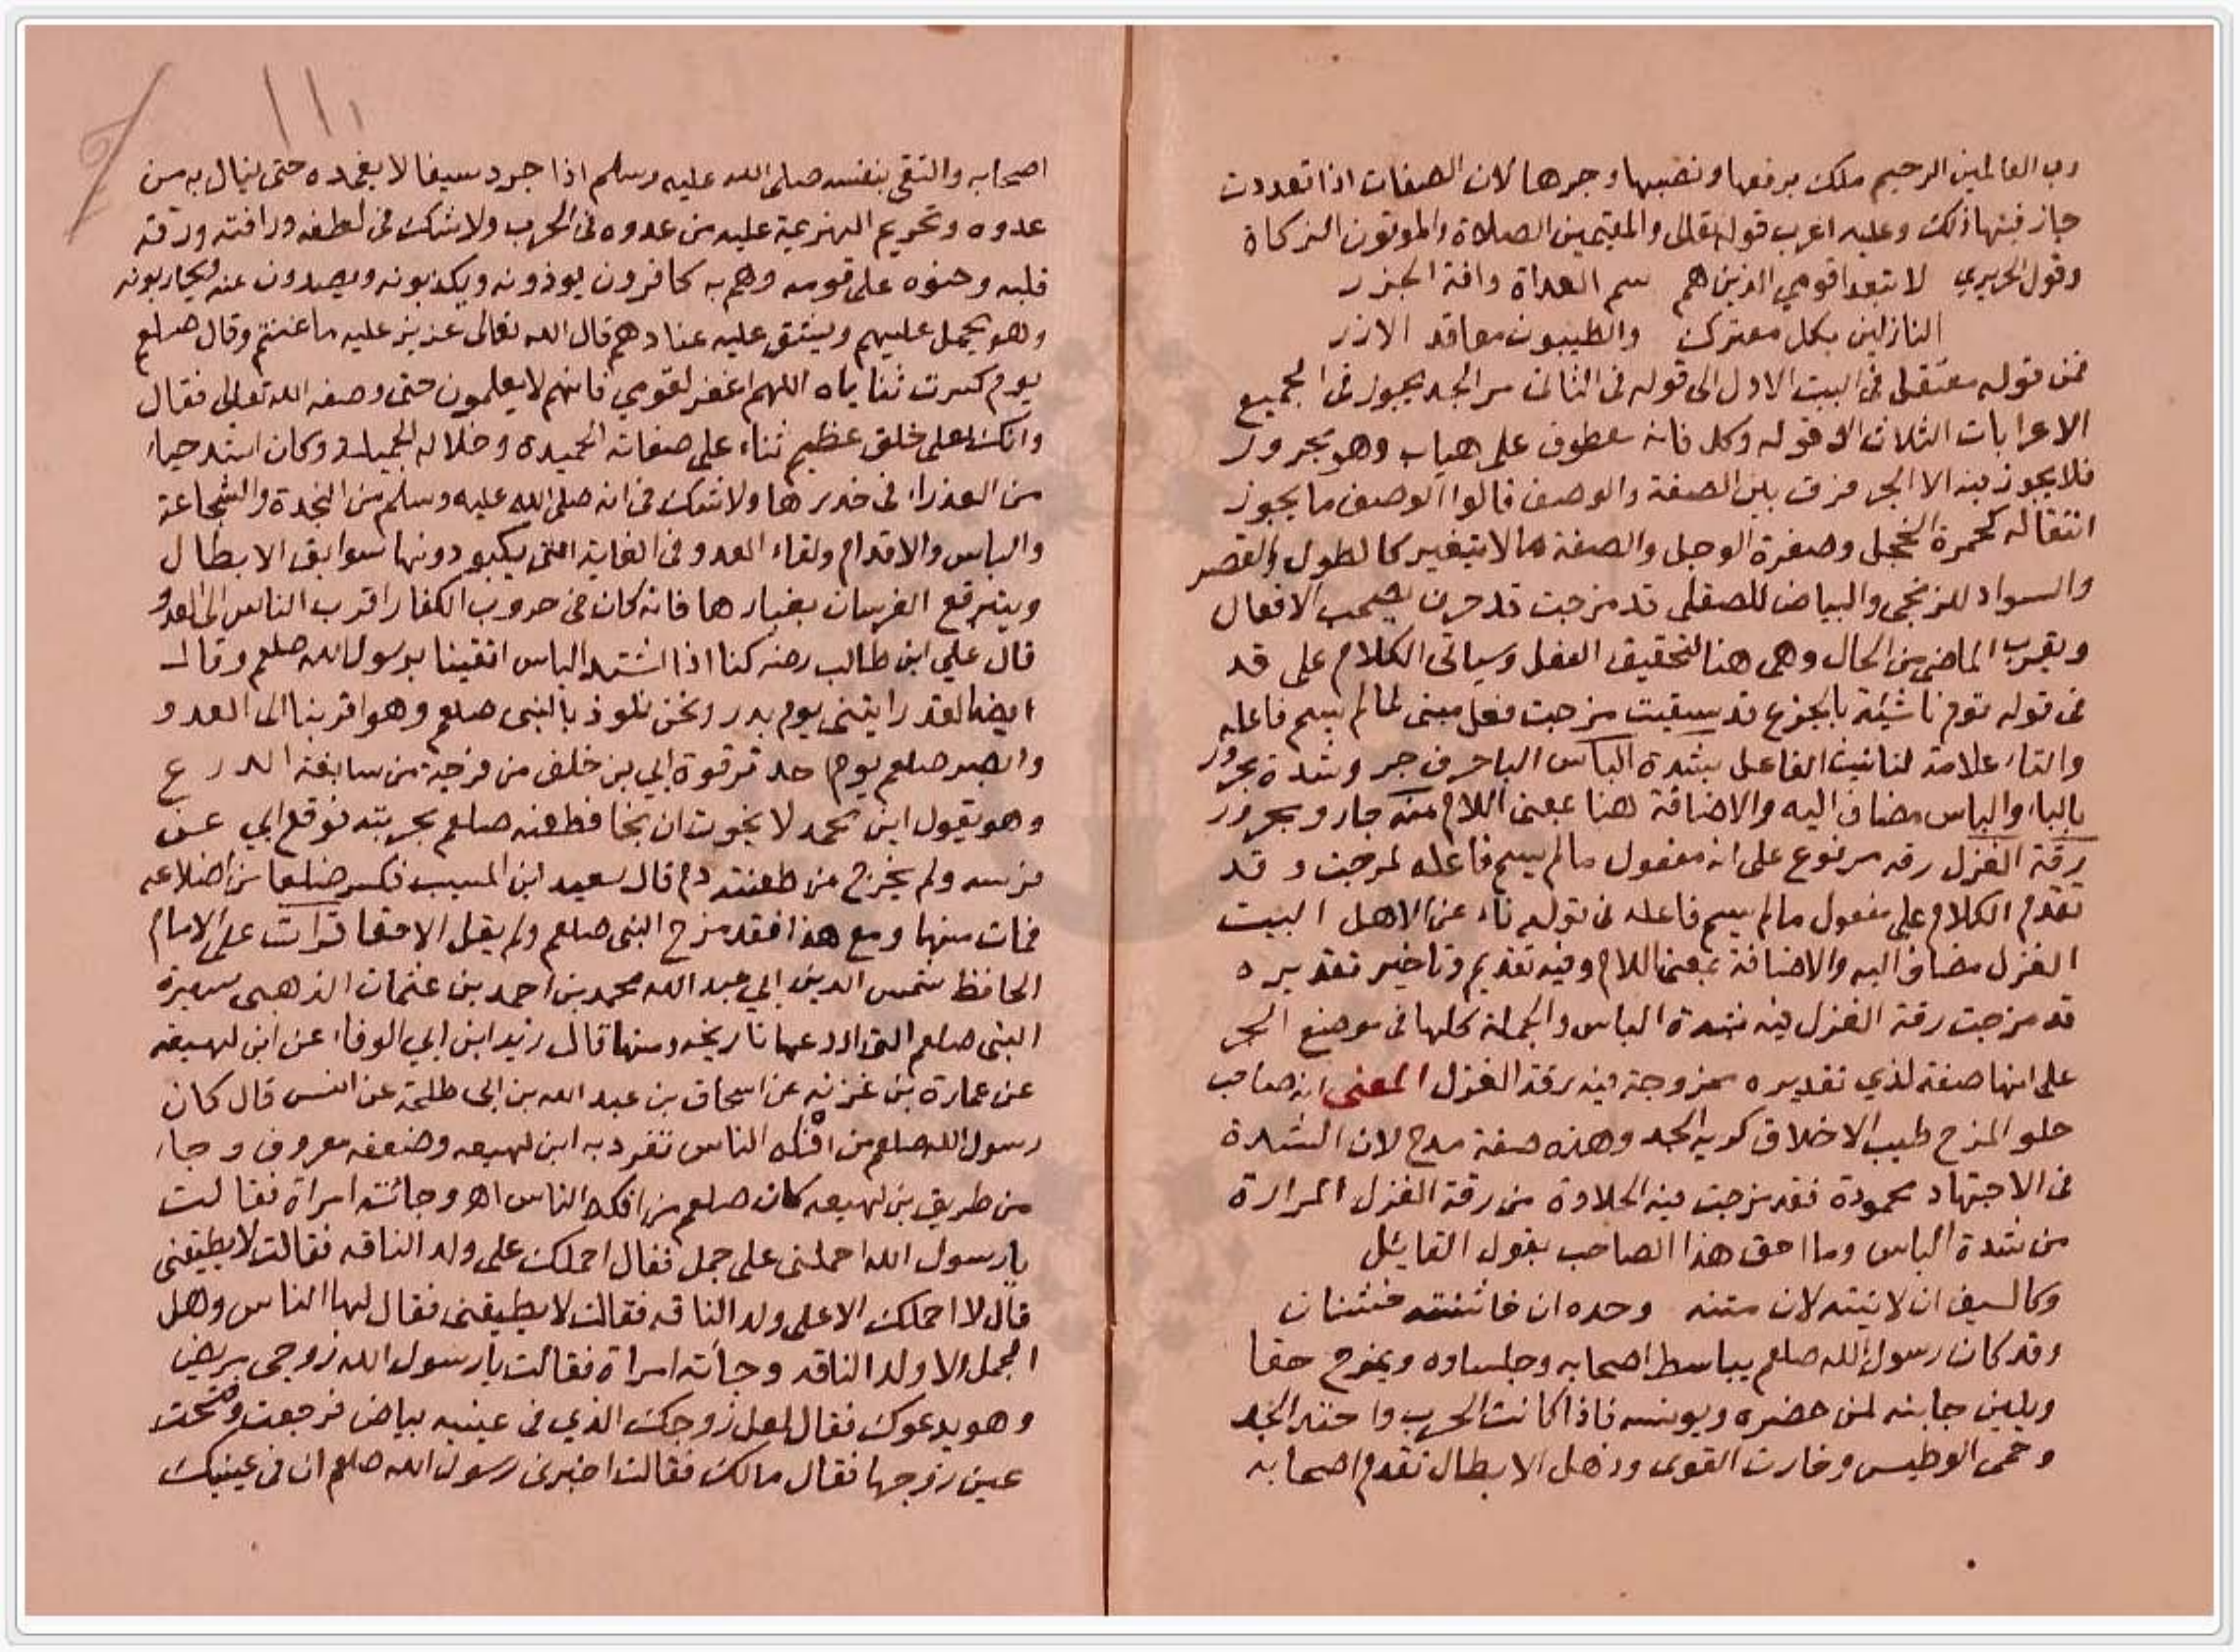 رب العالمين الرحيم ملك برفعها ونصبها وجرها لان الصفات اذا تعددت
جاز فيها ذلك وعليه اعرب قوله تعالى والمقيمين الصلاة والموتون الزكاة
وقول الحريري لا تبعدا قومي الذين هم سم العداة وافة الجزر
النازلين بكل معترك والطيبون معاقد الازر
فمن قوله معتقل في البيت الاول الى قوله في الثاني مر الجد يجوز في الجميع
الاعرابات الثلاث الا قوله وكل فانه معطوف على هياب وهو مجرور
فلا يجوز فيه الا الجر فرق بين الصفة والوصف قالوا الوصف ما يجوز
انتقاله كحمرة الخجل وصفرة الوجل والصفة ما لا يتغير كالطول والقصر
والسواد للزنجي والبياض للصقلى قد مزجت قد حرف يصحب الافعال
ويقرب الماضي من الحال وهي هنا لتحقيق الفعل وسياتي الكلام على قد
في قوله نوم ناشئة بالجزع قد سقيت مزجت فعل مبنى لما لم يسم فاعله
والتاء علامة لتانيث الفاعل بشدة الباس الباء حرف جر وشدة مجرور
بالباء والباس مضاف اليه والاضافة هنا بمعنى اللام منه جار ومجرور
رقة الغزل رقه مرفوع على انه مفعول مالم يسم فاعله لمزجت وقد
تقدم الكلام على مفعول مالم يسم فاعله في قوله ناء عن الاهل البيت
الغزل مضاف اليه والاضافة بمعنى اللام وفيه تقديم وتاخير تقديره
قد مزجت رقة الغزل فيه شدة الباس والجملة كلها في موضع الجر
على انها صفة لذي تقديره ممزوجة فيه رقة الغزل المعنى انه صاحب
حلو المزح طيب الاخلاق كريه الجد وهذه صفة مدح لان الشدة
في الاجتهاد محمودة فقد مزجت فيه الحلاوة من رقة الغزل المرارة
من شدة الباس وما احق هذا الصاحب بقول القايل
وكالسيف ان لاينته لان متنه وحده ان خاشنته خشنان
وقد كان رسول الله صلعم يباسط اصحابه وجلساوه ويمزح حقا
ويلين جانبه لمن حضره ويونسه فاذا كانت الحرب واحتد الجد
وحمى الوطيس وخارت القوى وذهل الابطال تقدم اصحابه
اصحابه والتقى بنفسه صلى الله عليه وسلم اذا جرد سيفا لا يغمده حتى ينال به من
عدوه وتحريم الهزيمة عليه من عدوه في الحرب ولا شك في لطفه ورافته ورقة
قلبه وحنوه على قومه وهم به كافرون يوذونه ويكذبونه ويصدون عنه ويحاربونه
وهو يحمل عليهم ويشق عليه عنادهم قال الله تعالى عزيز عليه ما عنتم وقال صلعم
يوم كسرت ثناياه اللهم اغفر لقومي فانهم لا يعلمون حتى وصفه الله تعالى فقال
وانك لعلى خلق عظيم ثناء على صفاته الحميدة وخلاله الجميلة وكان اشد حياء
من العذراء في خدرها ولا شك في انه صلى الله عليه وسلم من النجدة والشجاعة
والباس والاقدام ولقاء العدو في الغاية التي يكبو دونها سوابق الابطال
ويتبرقع الفرسان بغبارها فانه كان في حروب الكفار اقرب الناس الى العدو
قال علي ابن طالب رضه كنا اذا اشتد الباس اتقينا برسول الله صلعم وقال
ايضا لقد رايتنى يوم بدر ونحن نلوذ بالنبى صلعم وهو اقربنا الى العدو
وابصر صلعم يوم احد ترقوة ابي بن خلف من فرجة من سابغة الدرع
وهو يقول اين محمد لا نجوت ان نجا فطعنه صلعم بحربته فوقع ابي عن
فرسه ولم يخرج من طعنته دم قال سعيد ابن المسيب فكسر ضلعا من اضلاعه
فمات منها ومع هذا فقد مزح النبى صلعم ولم يقل الا حقا قرات على الامام
الحافظ شمس الدين ابي عبد الله محمد بن احمد بن عثمان الذهبى سيرة
النبى صلعم التي اودعها تاريخه ومنها قال زيد ابن ابي الوفاء عن ابن لهيعه
عن عمارة بن غزيه عن اسحاق بن عبد الله بن ابى طلحة عن انس قال كان
رسول الله صلعم من افكه الناس تفرد به ابن لهيعه وضعفه معروف وجاء
من طريق بن لهيعه كان صلعم من افكه الناس اه وجائته امراة فقالت
يا رسول الله احملنى على جمل فقال احملك على ولد الناقه فقالت لا يطيقنى
قال لا احملك الا على ولد الناقه فقالت لا يطيقنى فقال لها الناس وهل
الجمل الا ولد الناقه وجاته امراة فقالت يا رسول الله زوجى مريض
وهو يدعوك فقال لعل زوجك الذي في عينيه بياض فرجعت وفتحت
عين زوجها فقال مالك فقالت اخبرني رسول الله صلعم ان في عينيك